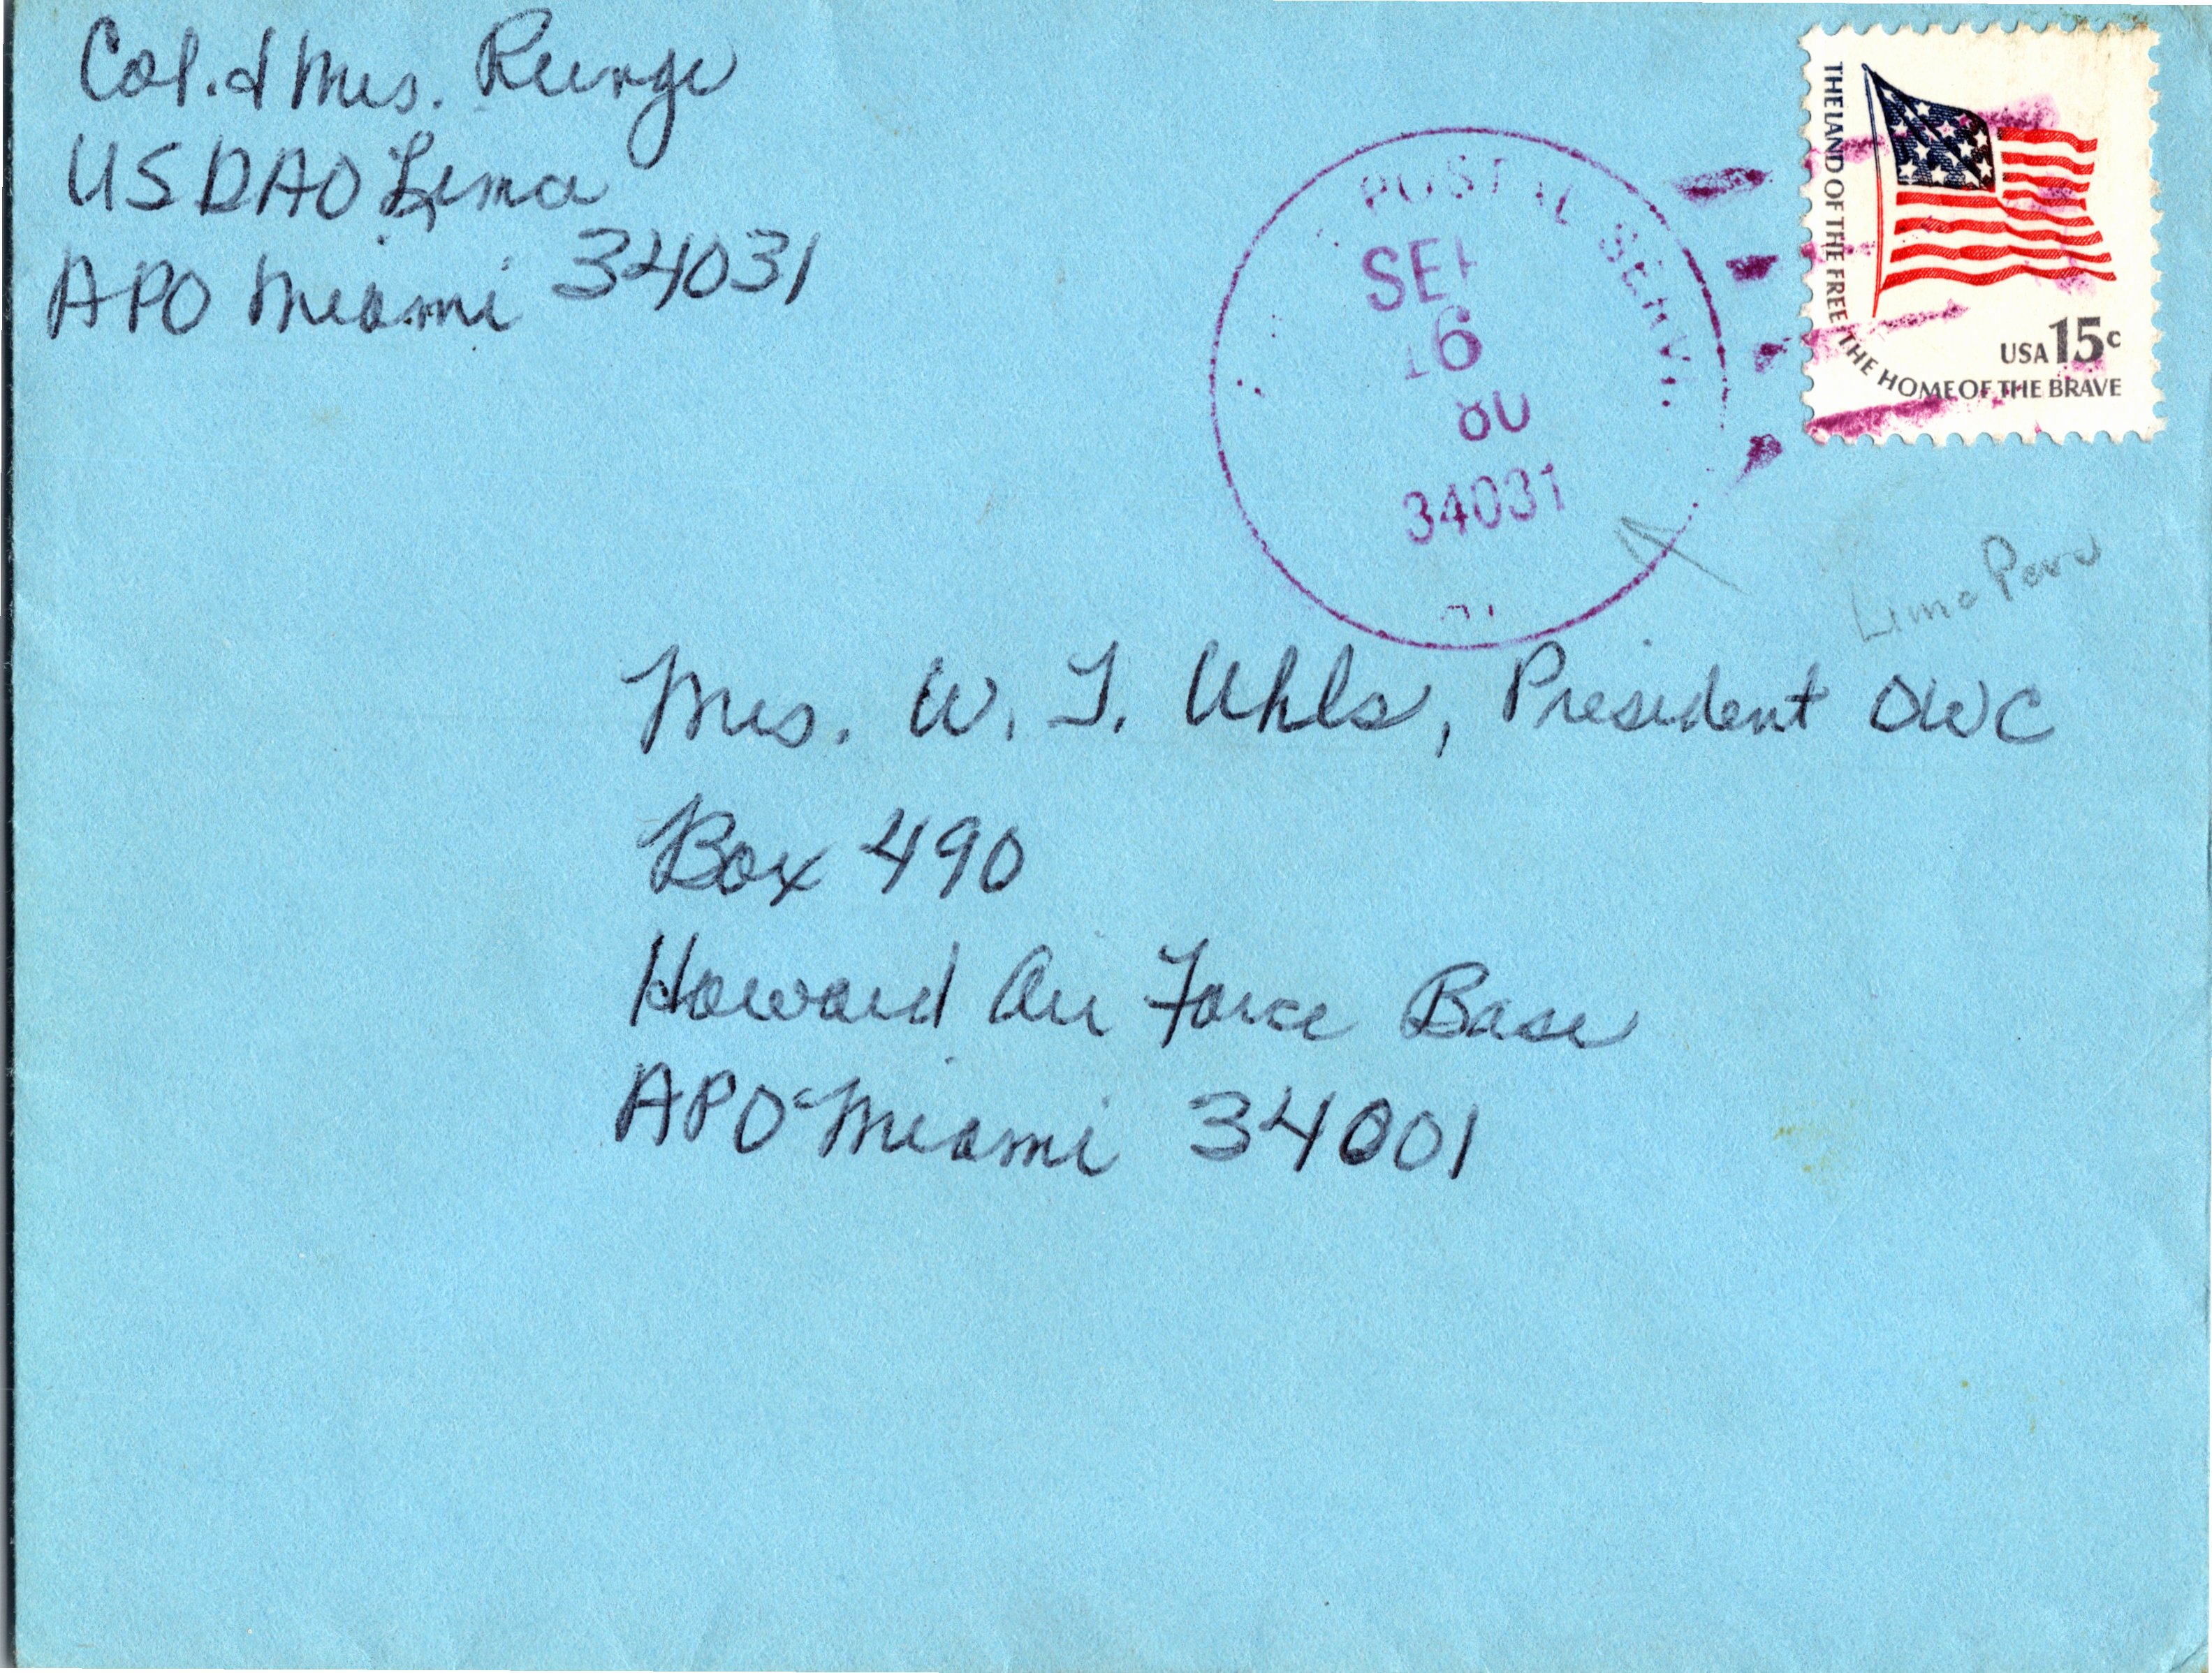 Col. & Mrs. Runge
USDAO Lima
APO Miami 34031
POSTAL SERV
SEP
16
80
34031
THE LAND OF THE FREE THE HOME OF THE BRAVE
USA 15c
Lima Peru
Mrs. W. T. Uhls, President OWC
Box 490
Howard Air Force Base
APO Miami 34001